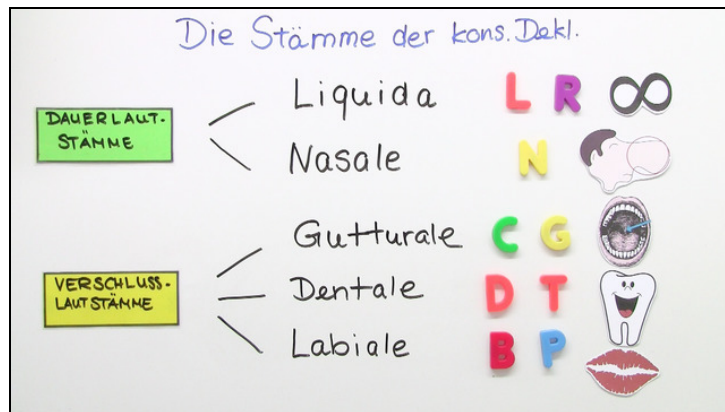 Die Stämme der kons. Dekl.
DAUERLAUT-
STÄMME
Liquida L R
Nasale N
VERSCHLUSS-
LAUTSTÄMME
Gutturale C G
Dentale D T
Labiale B P